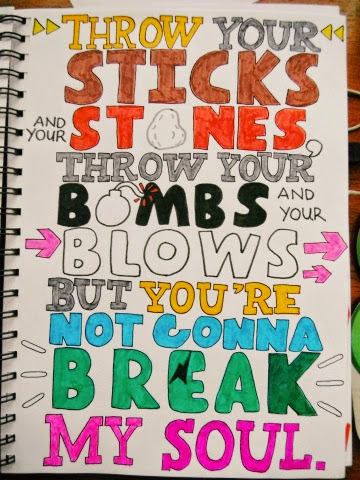 THROW YOUR
STICKS
AND YOUR STONES,
THROW YOUR
BOMBS AND YOUR
BLOWS
BUT YOU'RE
NOT GONNA
BREAK
MY SOUL.